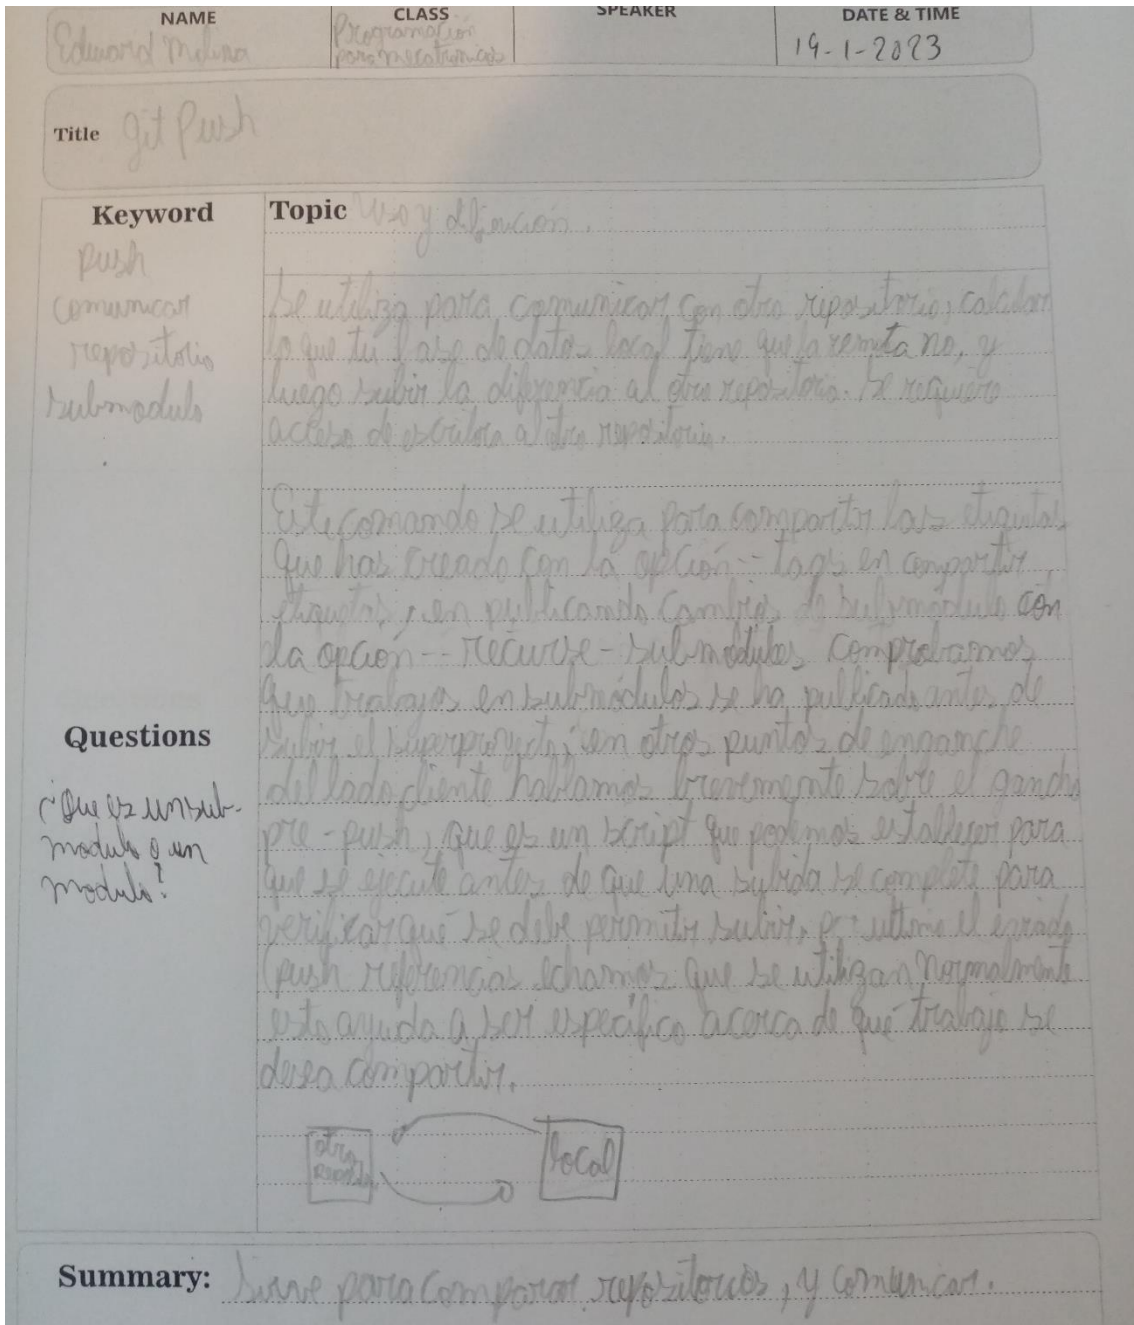 NAME
CLASS
SPEAKER
DATE & TIME
Edward Molina
Programación
para mecatronicos
19-1-2023
Title git Push
Keyword
push
comunicar
repositorio
submodulo
Questions
¿Que es un sub-
modulo o un
modulo?
Topic Uso y definicion.
Se utiliza para comunicar con otro ripositorio, calcular
lo que tu base de datos local tiene que la remota no, y
luego subir la diferencia al otro repositorio. Se requiere
acceso de escritura al otro repositorio.
Este comando se utiliza para compartir las etiquetas
que has creado con la opción -- tags en compartir
etiquetas, en publicando cambios de submódulo con
la opción -- recurse - submodules comprobamos
que trabajos en submódulos se ha publicado antes de
subir el superproyecto, en otros puntos de enganche
del lado cliente hablamos brevemente sobre el gancho
pre - push, que es un script que podemos establecer para
que se ejecute antes de que una subida se complete para
verificar que se debe permitir subir, por ultimo el
push referencias echamos que se utilizan normalmente
esto ayuda a ser específico acerca de qué trabajo se
desea compartir.
otro
local
Summary: Sirve para comparar repositorios, y comunicar.